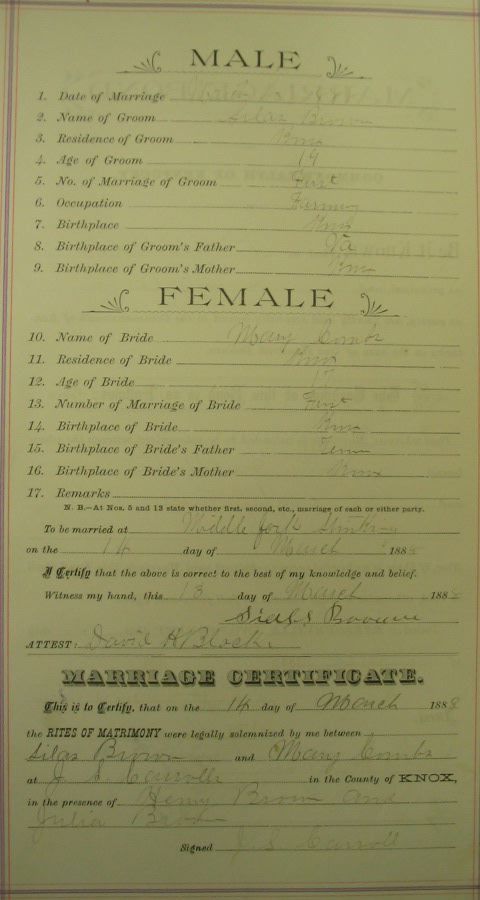 MALE
1. Date of Marriage
2. Name of Groom Silas Brown
3. Residence of Groom Knox
4. Age of Groom 19
5. No. of Marriage of Groom First
6. Occupation Farming
7. Birthplace Knox
8. Birthplace of Groom's Father Va
9. Birthplace of Groom's Mother Knox
FEMALE
10. Name of Bride Mary Combs
11. Residence of Bride Knox
12. Age of Bride
13. Number of Marriage of Bride First
14. Birthplace of Bride Knox
15. Birthplace of Bride's Father Tenn
16. Birthplace of Bride's Mother Knox
17. Remarks
N. B.—At Nos. 5 and 13 state whether first, second, etc., marriage of each or either party.
To be married at Middle fork Stinking
on the 14 day of March 1888
I Certify that the above is correct to the best of my knowledge and belief.
Witness my hand, this 13 day of March 1888
Brown
ATTEST: David H Black
MARRIAGE CERTIFICATE.
This is to Certify, that on the 14 day of March 1888
the RITES OF MATRIMONY were legally solemnized by me between
Silas Brown and Mary Combs
at J. S. Carrolls in the County of KNOX,
in the presence of Henry Brown and
Julia Brown
Signed J. S. Carroll